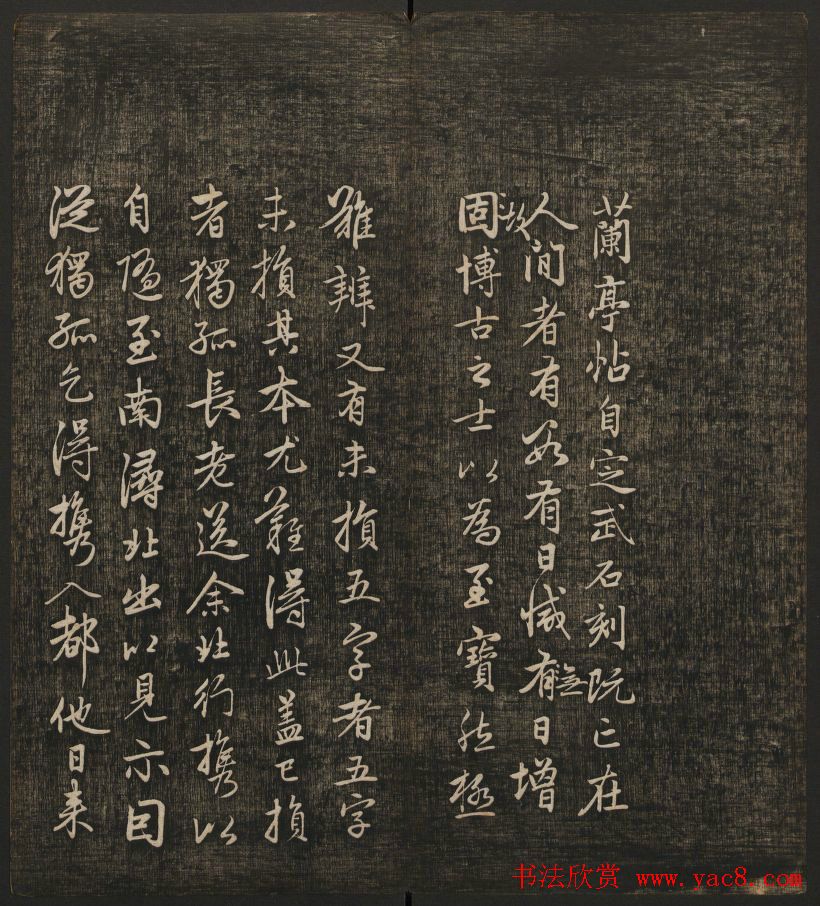 蘭亭帖自定武石刻既亡在
人間者有數有日減有日增
無
故
固博古之士以為至寶然極
難辨又有未損五字者五字
未損其本尤難得此蓋已損
者獨孤長老送余北行攜以
自隨至南潯北出以見示因
從獨孤乞得攜入都他日來
书法欣赏 www.yac8.com